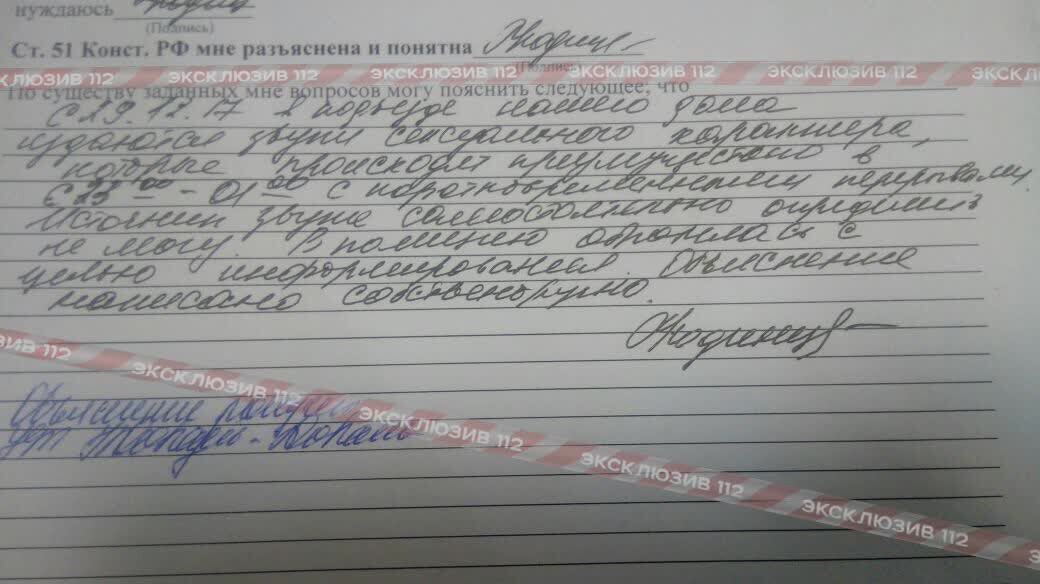 нуждаюсь
(Подпись)
Ст. 51 Конст. РФ мне разъяснена и понятна
(Подпись)
ЭКСКЛЮЗИВ 112 ЭКСКЛЮЗИВ 112 ЭКСКЛЮЗИВ 112 ЭКСКЛЮЗИВ 112 ЭКСКЛЮЗИВ 112
По существу заданных мне вопросов могу пояснить следующее, что
с 19.12.17 в подъезде нашего дома
издаются звуки сексуального характера,
которые происходят преимущественно в
с 23 00 - 01 00 с кратковременными перерывами.
Источник звука самостоятельно определить
не могу. В полицию обратилась с
целью информирования. Объяснение
написано собственноручно.
ЭКСКЛЮЗИВ 112 ЭКСКЛЮЗИВ 112 ЭКСКЛЮЗИВ 112 ЭКСКЛЮЗИВ 112 ЭКСКЛЮЗИВ 112
Объяснение